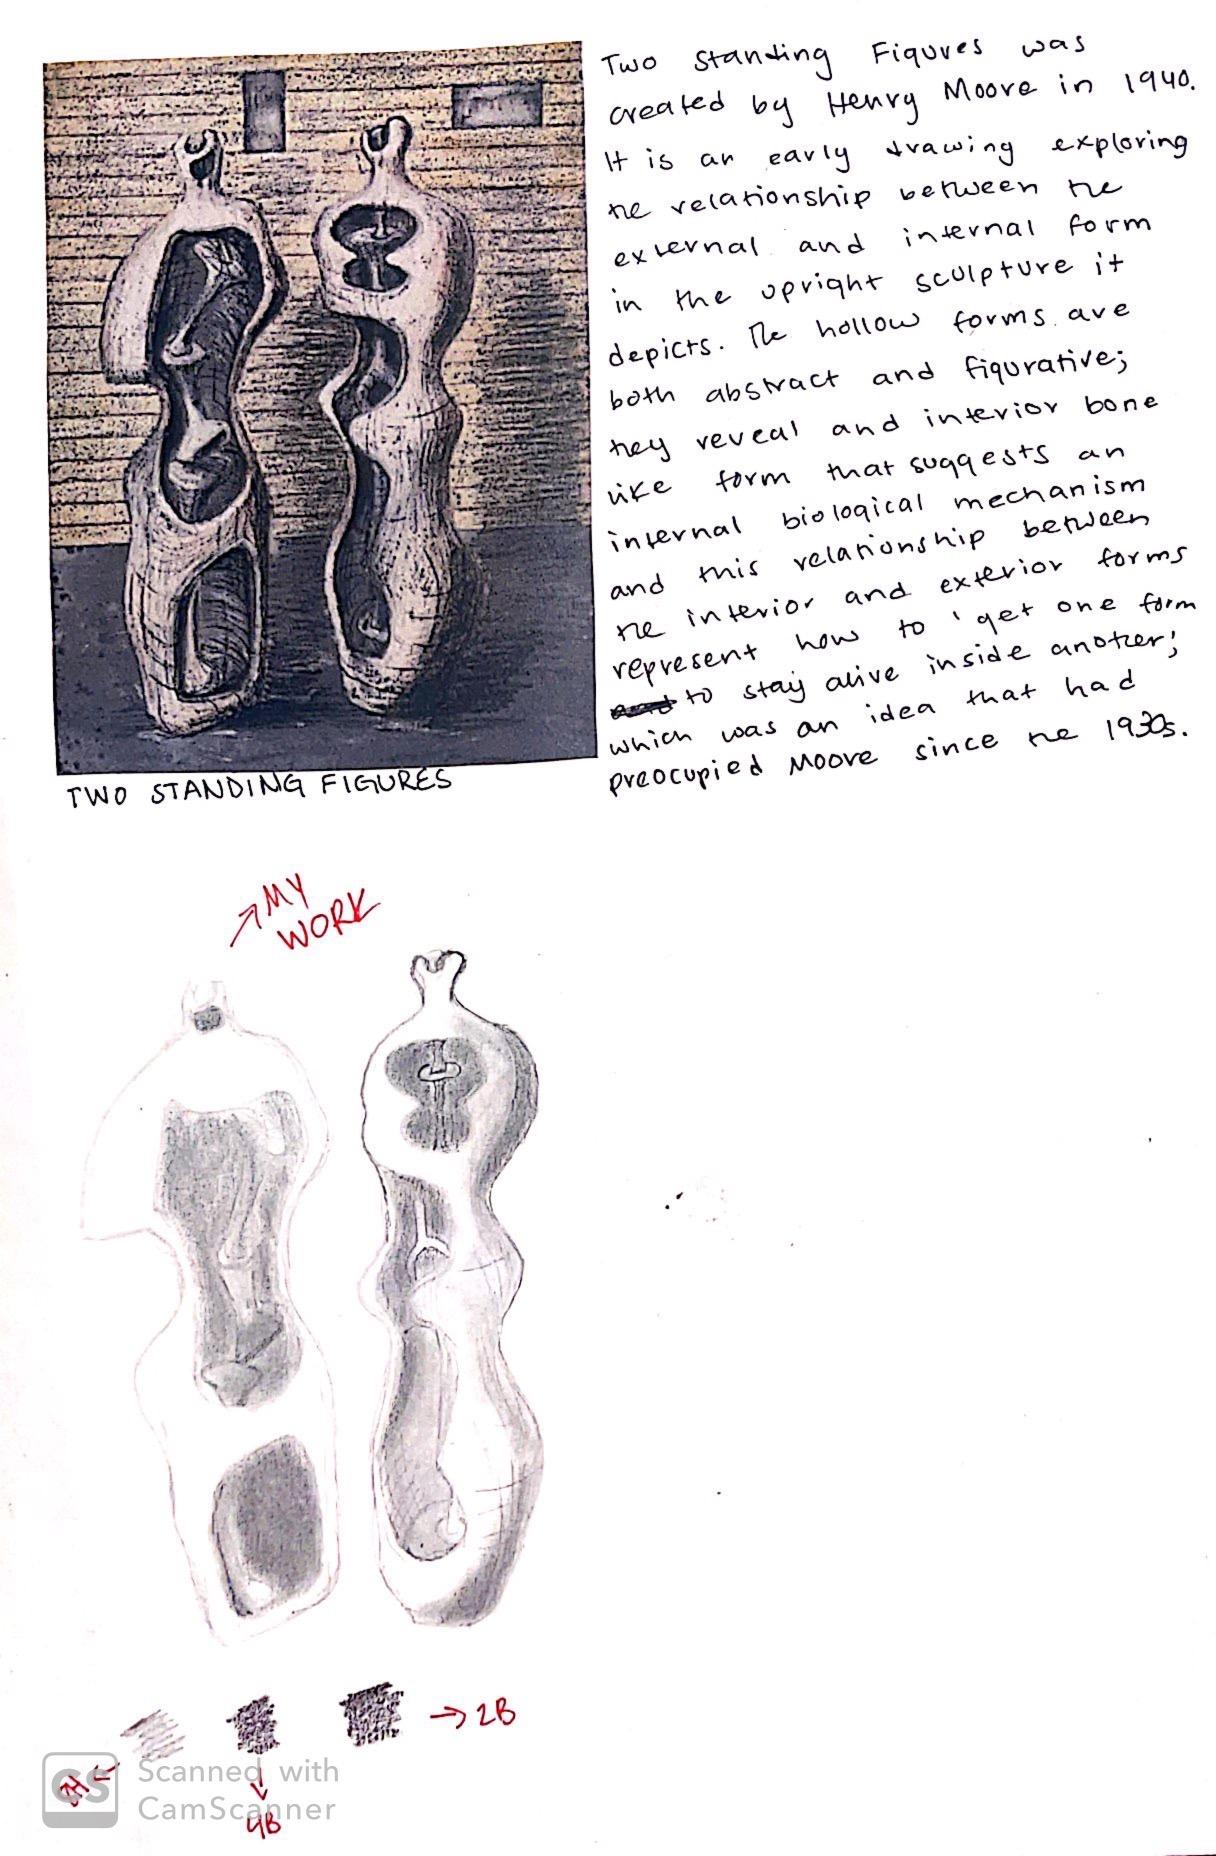 Two standing Figures was
created by Henry Moore in 1940.
It is an early drawing exploring
the relationship between the
external and internal form
in the upright sculpture it
depicts. The hollow forms are
both abstract and figurative;
they reveal and interior bone
like form that suggests an
internal biological mechanism
and this relationship between
the interior and exterior forms
represent how to 'get one form
to stay alive inside another;
which was an idea that had
preocupied Moore since the 1930s.
TWO STANDING FIGURES
MY
WORK
2B
4B
Scanned with
CamScanner
CS